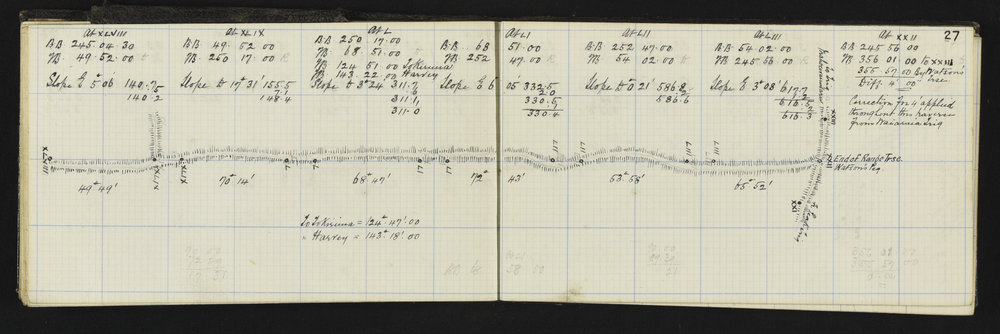 27
At XLVIII
BB 245 04 30
FB 49 52 00
Slope E 5° 06' 140.75
140.2
At XLIX
BB 49 52 00
FB 250 17 00 R
Slope D 17° 31' 155.5
148.4
At L
BB 250 17 00
FB 68 51 00
FB 124 51 00 Tokirima
FB 143 22 00 Harvey
Slope D 3° 24 311.7
311.1
311.0
At LI
BB 68 51 00
FB 252 47 00 R
Slope E 6 05' 332.5
2.0
330.5
330.4
At LII
BB 252 47 00
FB 54 02 00
Slope D 0° 21' 586.8
586.6
At LIII
BB 54 02 00
FB 245 56 00 R
Slope E 3° 08' 617.7
615.3
At XXII
BB 245 56 00
FB 356 01 00 to XXIII
355 57 00 By Watson's
Diff. 4' 00" tree
Correction for 4' applied
throughout this traverse
from Waiaraia Trig
XLVIII
XLIX
XLIX
L
L
LI
LII
LII
LIII
LIII
XXII
XXI
End of Range Tree
Watson's Peg.
49° 49'
70° 14'
68° 47'
72° 43'
53° 58'
65° 52'
To Tokirima = 124° 47' 00
" Harvey = 143° 18' 00